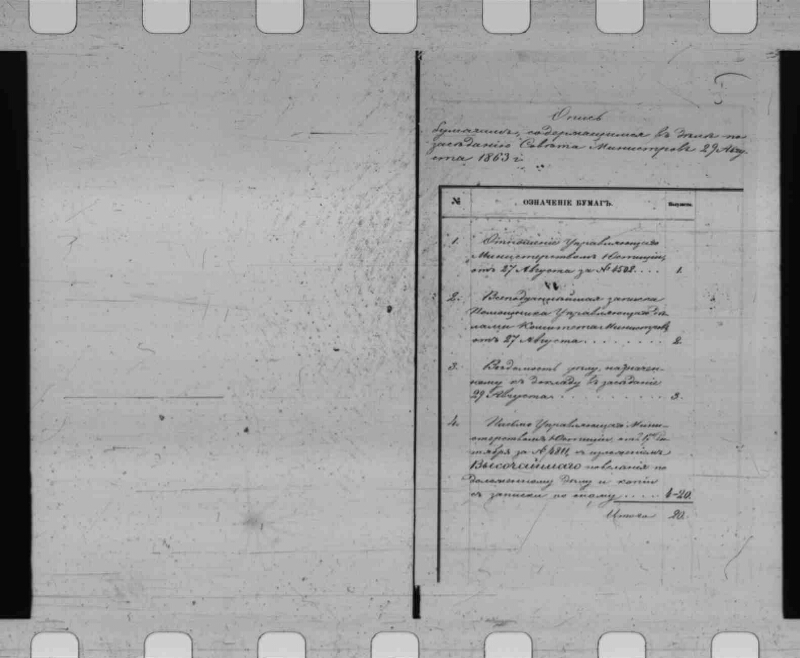 Опись
бумагамъ, содержащимся въ дѣлѣ по
засѣданію Совѣта Министровъ 29 Авгу-
ста 1863 г.
№ ОЗНАЧЕНІЕ БУМАГЪ.
1. Отношеніе Управляющаго
Министерствомъ Юстиціи,
отъ 27 Августа за № 4502. . . . 1.
2. Всеподданнѣйшая записка
Помощника Управляющаго дѣ-
лами Комитета Министровъ,
отъ 27 Августа. . . . . . . . 2.
3. Вѣдомость дѣлу, назначен-
ному къ докладу въ засѣданіе
29 Августа. . . . . . . . . . 3.
4. Письмо Управляющаго Мини-
стерствомъ Юстиціи, отъ
за № 4811, съ
Высочайшаго повелѣнія по
доложенному дѣлу и копіи
съ записки по оному . . . . 4-20.
Итого 20.